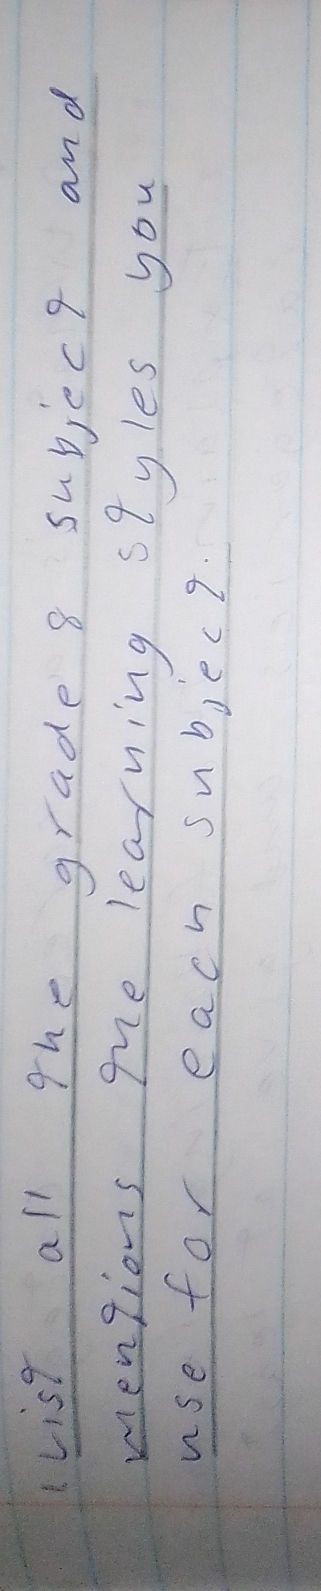 1 List all the grade 8 subject and
mentions the learning styles you
use for each subject.